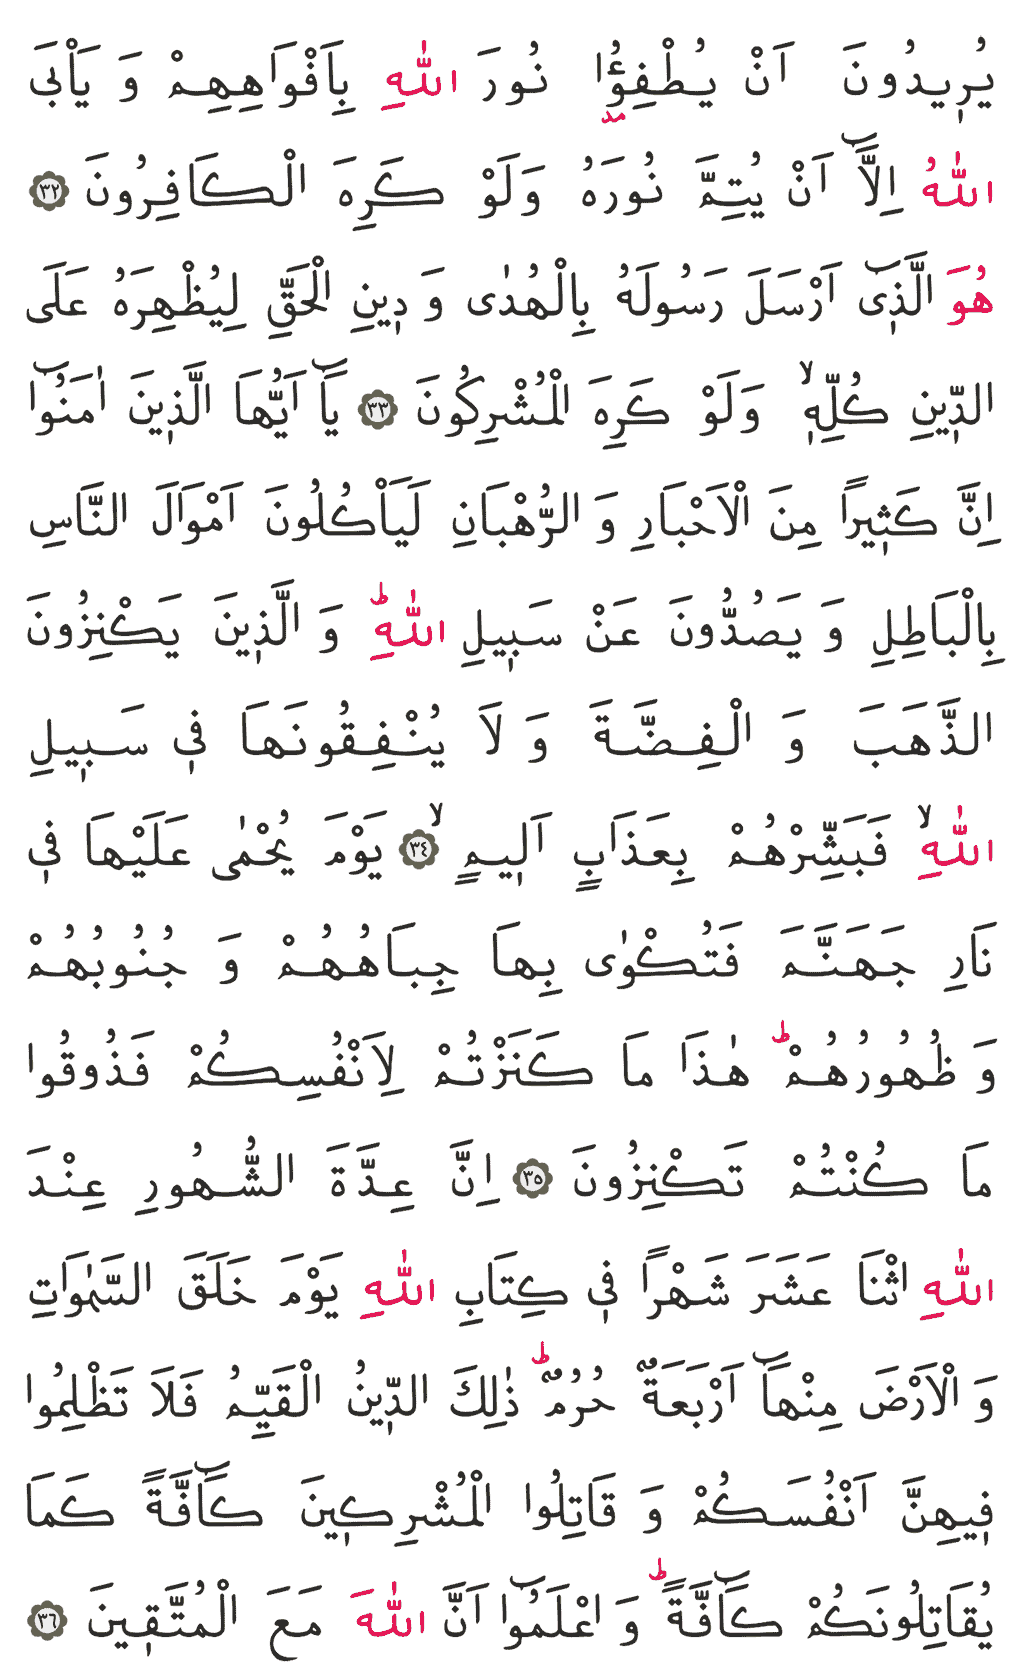 يُرٖيدُونَ اَنْ يُطْفِؤُ۫ا نُورَ اللّٰهِ بِاَفْوَاهِهِمْ وَ يَاْبَى
اللّٰهُ اِلَّٓا اَنْ يُتِمَّ نُورَهُ وَلَوْ كَرِهَ الْكَافِرُونَ ﴿٣٢﴾
هُوَ الَّذٖٓى اَرْسَلَ رَسُولَهُ بِالْهُدٰى وَ دٖينِ الْحَقِّ لِيُظْهِرَهُ عَلَى
الدّٖينِ كُلِّهٖۙ وَلَوْ كَرِهَ الْمُشْرِكُونَ ﴿٣٣﴾ يَٓا اَيُّهَا الَّذٖينَ اٰمَنُٓوا
اِنَّ كَثٖيرًا مِنَ الْاَحْبَارِ وَ الرُّهْبَانِ لَيَاْكُلُونَ اَمْوَالَ النَّاسِ
بِالْبَاطِلِ وَ يَصُدُّونَ عَنْ سَبٖيلِ اللّٰهِؕ وَ الَّذٖينَ يَكْنِزُونَ
الذَّهَبَ وَ الْفِضَّةَ وَ لَا يُنْفِقُونَهَا فٖى سَبٖيلِ
اللّٰهِۙ فَبَشِّرْهُمْ بِعَذَابٍ اَلٖيمٍۙ ﴿٣٤﴾ يَوْمَ يُحْمٰى عَلَيْهَا فٖى
نَارِ جَهَنَّمَ فَتُكْوٰى بِهَا جِبَاهُهُمْ وَ جُنُوبُهُمْ
وَ ظُهُورُهُمْؕ هٰذَا مَا كَنَزْتُمْ لِاَنْفُسِكُمْ فَذُوقُوا
مَا كُنْتُمْ تَكْنِزُونَ ﴿٣٥﴾ اِنَّ عِدَّةَ الشُّهُورِ عِنْدَ
اللّٰهِ اثْنَا عَشَرَ شَهْرًا فٖى كِتَابِ اللّٰهِ يَوْمَ خَلَقَ السَّمٰوَاتِ
وَ الْاَرْضَ مِنْهَٓا اَرْبَعَةٌ حُرُمٌؕ ذٰلِكَ الدّٖينُ الْقَيِّمُ فَلَا تَظْلِمُوا
فٖيهِنَّ اَنْفُسَكُمْ وَ قَاتِلُوا الْمُشْرِكٖينَ كَٓافَّةً كَمَا
يُقَاتِلُونَكُمْ كَٓافَّةًؕ وَ اعْلَمُٓوا اَنَّ اللّٰهَ مَعَ الْمُتَّقٖينَ ﴿٣٦﴾